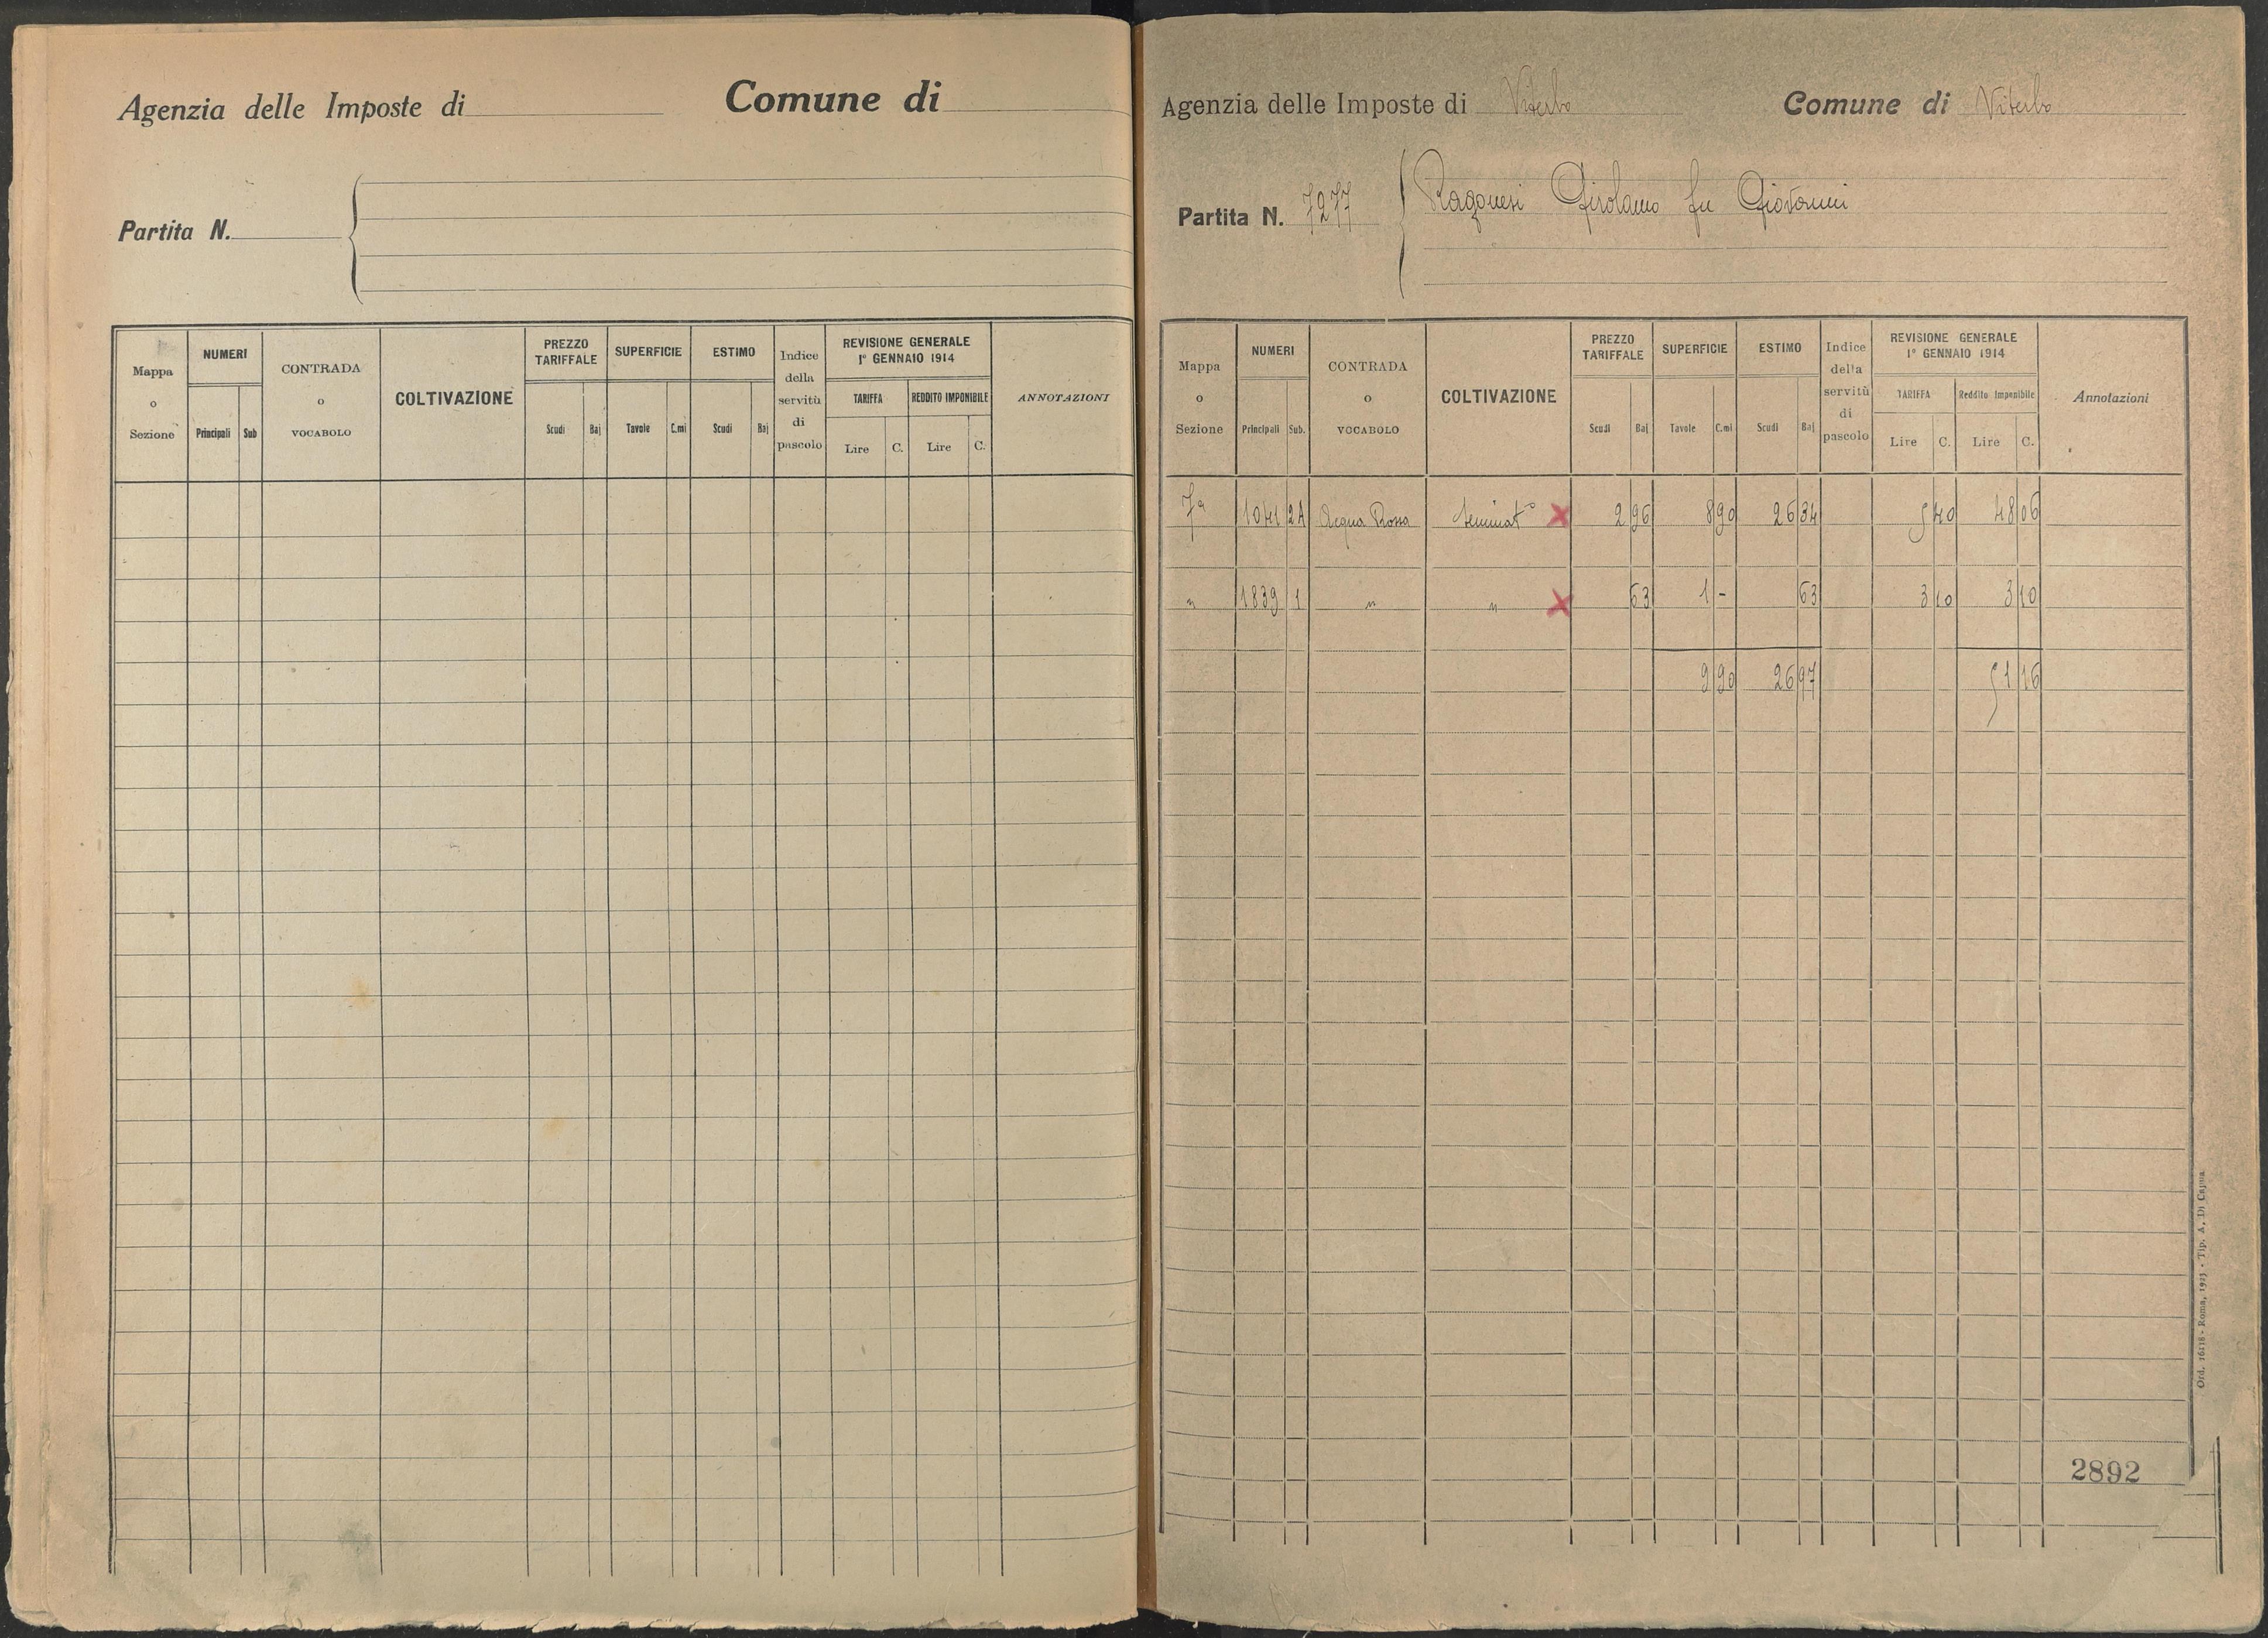 Agenzia delle Imposte di Comune di
Partita N.
Mappa o Sezione NUMERI Principali Sub CONTRADA o VOCABOLO COLTIVAZIONE PREZZO TARIFFALE Scudi Baj SUPERFICIE Tavole C.mi ESTIMO Scudi Baj Indice della servitù di pascolo REVISIONE GENERALE 1° GENNAIO 1914 TARIFFA Lire C. REDDITO IMPONIBILE Lire C. ANNOTAZIONI
Agenzia delle Imposte di Viterbo Comune di Viterbo
Partita N. 7277 Ragonesi Girolamo fu Giovanni
Mappa o Sezione NUMERI Principali Sub. CONTRADA o VOCABOLO COLTIVAZIONE PREZZO TARIFFALE Scudi Baj SUPERFICIE Tavole C.mi ESTIMO Scudi Baj Indice della servitù di pascolo REVISIONE GENERALE 1° GENNAIO 1914 TARIFFA Lire C. Reddito Imponibile Lire C. Annotazioni
7a 1041 2A Acqua Rossa seminat° X 2 96 8 90 26 34 5 40 48 06
" 1839 1 " " X 63 1 - 63 3 10 3 10
9 90 26 97 51 16
2892
Ord. 16218 - Roma, 1925 - Tip. A. Di Capua